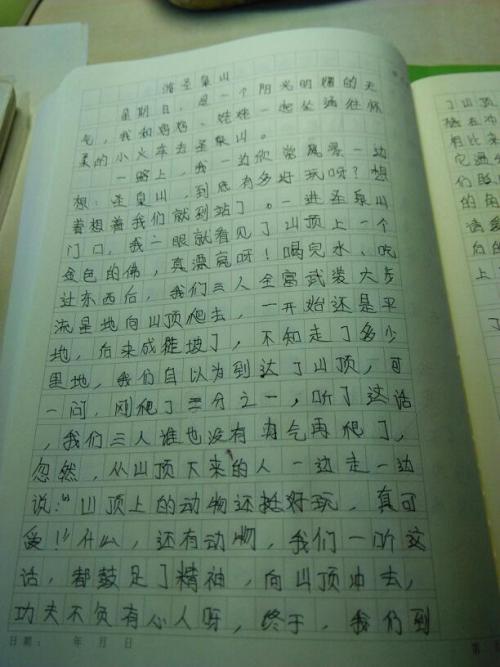 游圣泉山
星期日，是一个阳光明媚的天
气，我和妈妈、姥姥一起坐通往怀
柔的小火车去圣泉山。
一路上，我一边欣赏风景一边
想：圣泉山，到底有多好玩呀？想
着想着我们就到站了。一进圣泉山
门口，我一眼就看见了山顶上一个
金色的佛，真漂亮呀！喝完水、吃
过东西后，我们三人全富武装大步
流星地向山顶爬去，一开始还是平
地，后来成徒坡了，不知走了多少
里地，我们自以为到达了山顶，可
一问，刚爬了三分之一，听了这话
，我们三人谁也没有力气再爬了，
忽然，从山顶下来的人一边走一边
说：“山顶上的动物还挺好玩，真可
爱！”什么，还有动物，我们一听这
话，都鼓足了精神，向山顶冲去，
功夫不负有心人呀，终于，我们到
日期： 年 月 日
第
了山顶
有比
它
们
的
后的
上